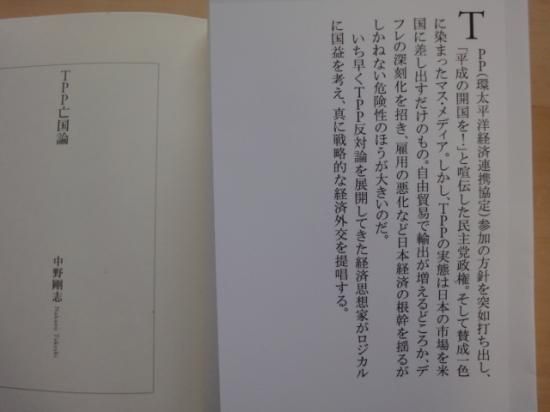 TPP(環太平洋経済連携協定)参加の方針を突如打ち出し、
「平成の開国を!」と喧伝した民主党政権。そして賛成一色
に染まったマス・メディア。しかし、TPPの実態は日本の市場を米
国に差し出すだけのもの。自由貿易で輸出が増えるどころか、デ
フレの深刻化を招き、雇用の悪化など日本経済の根幹を揺るが
しかねない危険性のほうが大きいのだ。
いち早くTPP反対論を展開してきた経済思想家がロジカル
に国益を考え、真に戦略的な経済外交を提唱する。
TPP亡国論
中野剛志
Nakano Takeshi